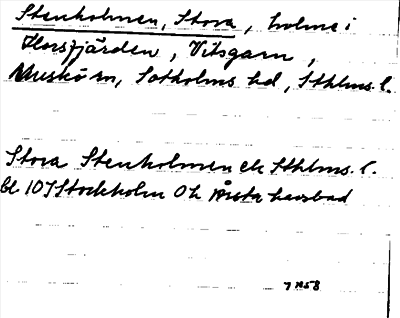 Stenholmen, Stora, holme i
Horsfjärden, Vitsgarn,
Muskö sn, Sotholms hd, Sthlms. l.
Stora Stenholmen ek Sthlms. l.
bl 107 Stockholm Oh Årsta havsbad